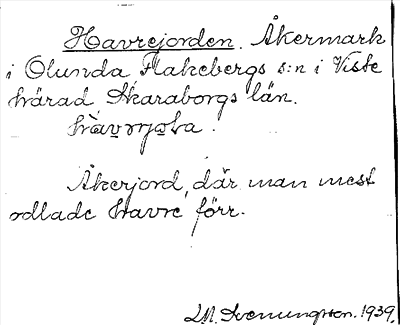 Havrejorden. Åkermark
i Olunda Flakebergs s:n i Viste
härad Skaraborgs län.
Åkerjord, där man mest
odlade havre förr.
1939.